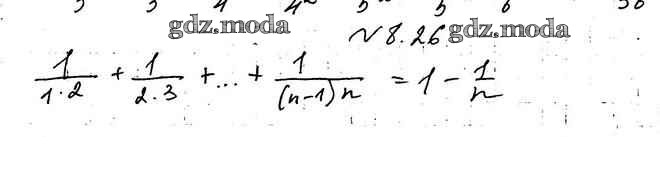 gdz.moda
№ 8.26 gdz.moda
1/(1·2) + 1/(2·3) + ... + 1/((n-1)n) = 1 - 1/n